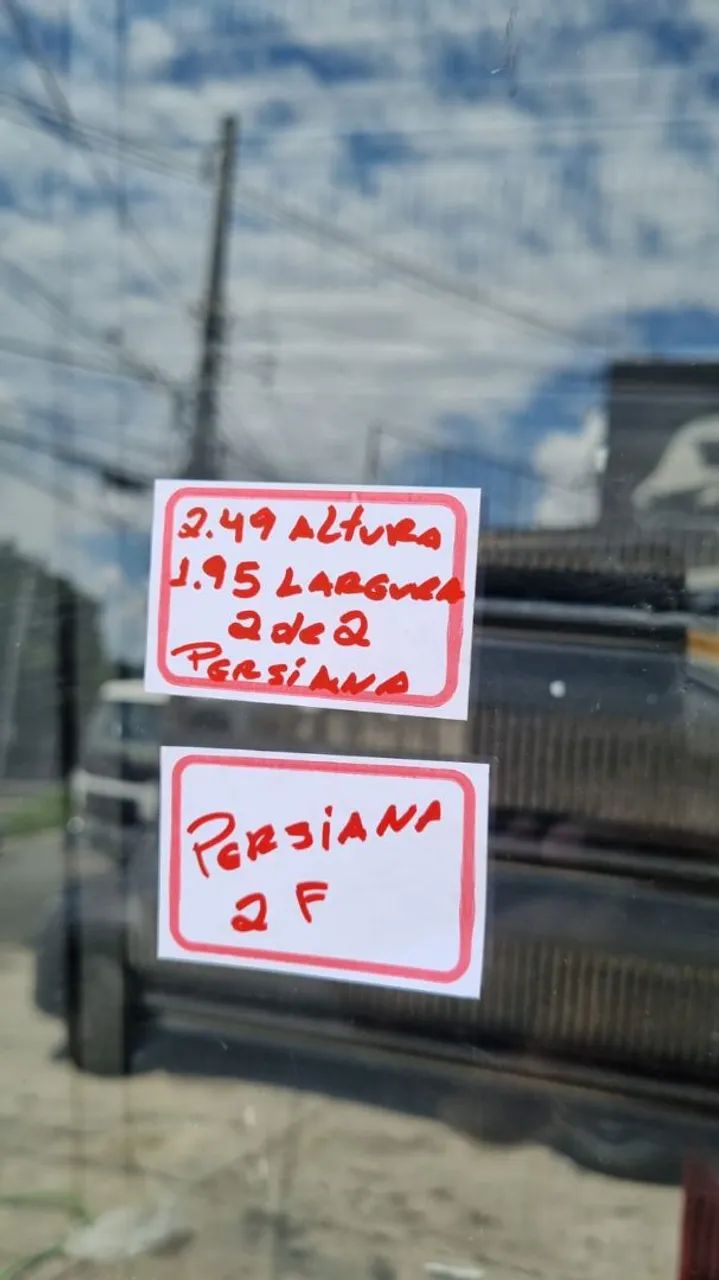 2.49 ALTURA
1.95 LARGURA
2 de 2
PERSIANA
PERSIANA
2 F